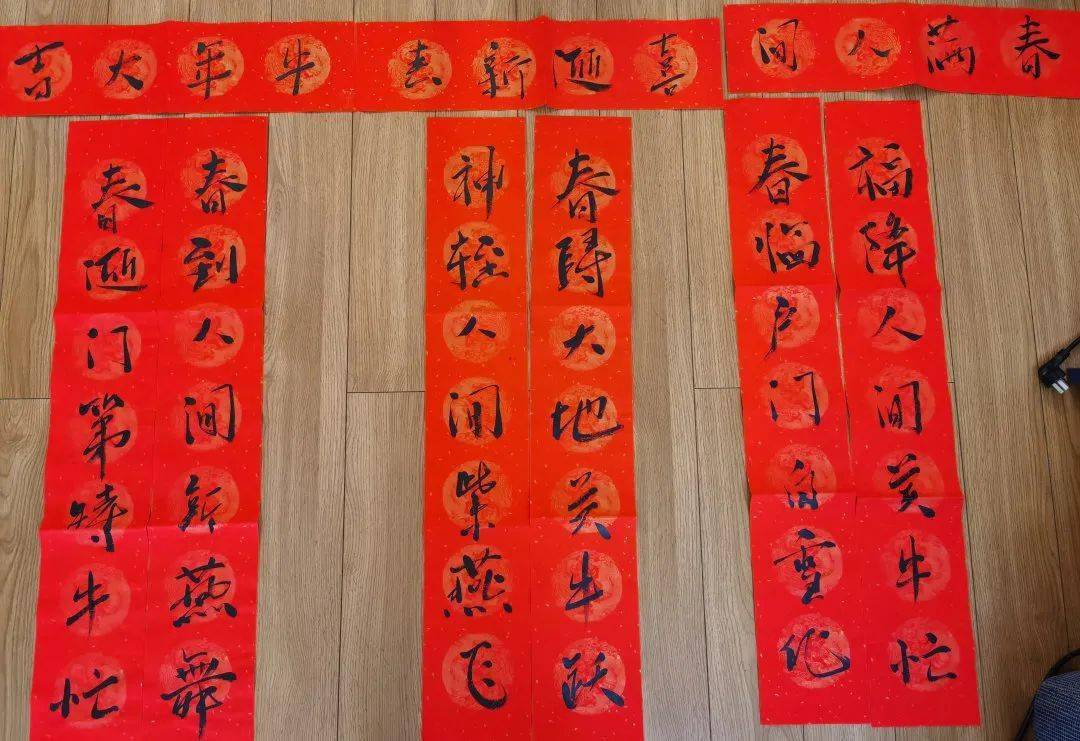 春满人间
喜迎新春
牛年大吉
福降人间黄牛忙
春临户门白雪化
春归大地黄牛跃
神人间紫燕飞
春到人间新燕舞
春迎门第牛忙